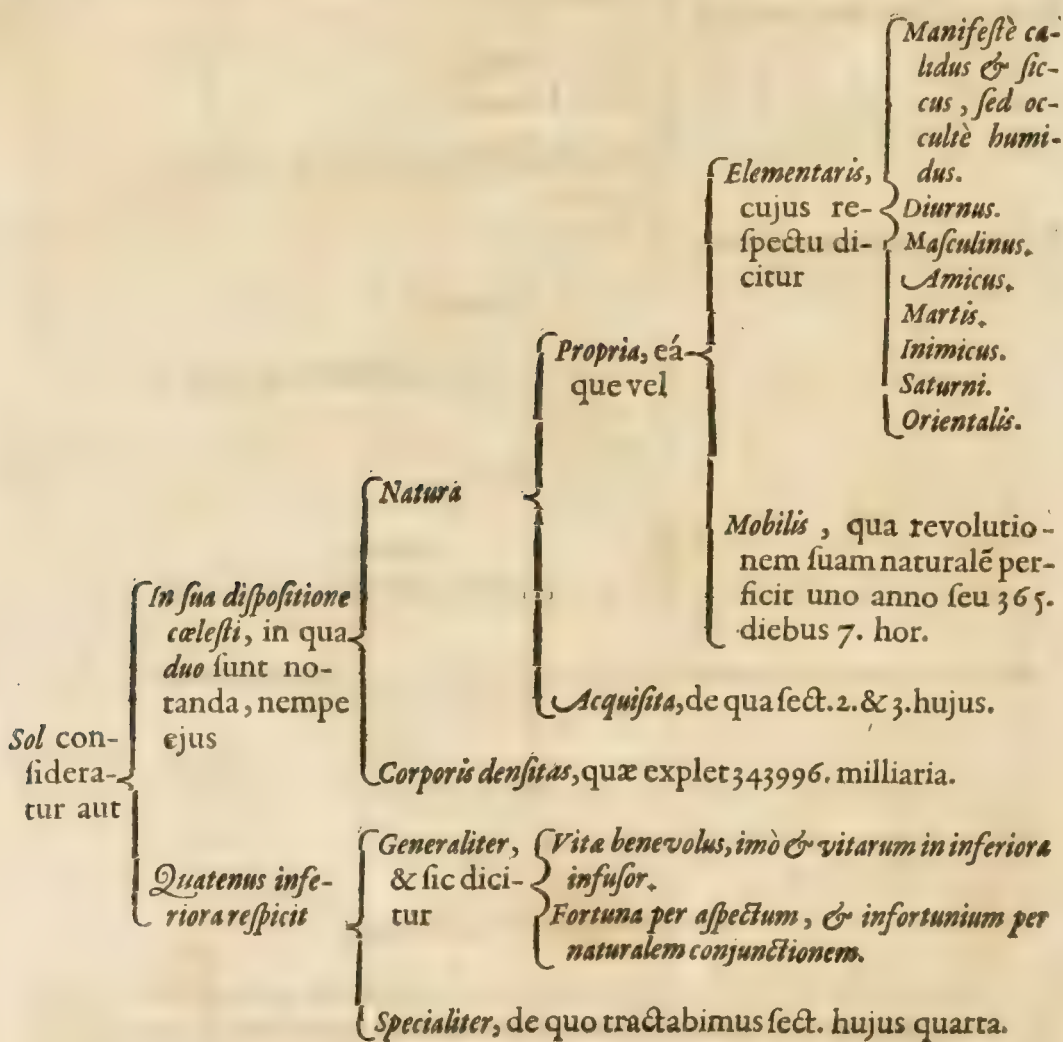 Sol con-
ſidera-
tur aut
In ſua diſpoſitione
cæleſti, in qua
duo ſunt no-
tanda, nempe
ejus
Natura
Propria, eá-
que vel
Elementaris,
cujus re-
ſpectu di-
citur
Manifeſtè ca-
lidus & ſic-
cus, ſed oc-
cultè humi-
dus.
Diurnus.
Maſculinus.
Amicus.
Martis.
Inimicus.
Saturni.
Orientalis.
Mobilis, qua revolutio-
nem ſuam naturalẽ per-
ficit uno anno ſeu 365.
diebus 7. hor.
Acquiſita, de qua ſect. 2. & 3. hujus.
Corporis denſitas, quæ explet 343996. milliaria.
Quatenus infe-
riora reſpicit
Generaliter,
& ſic dici-
tur
Vitæ benevolus, imò & vitarum in inferiora
infuſor.
Fortuna per aſpectum, & infortunium per
naturalem conjunctionem.
Specialiter, de quo tractabimus ſect. hujus quarta.